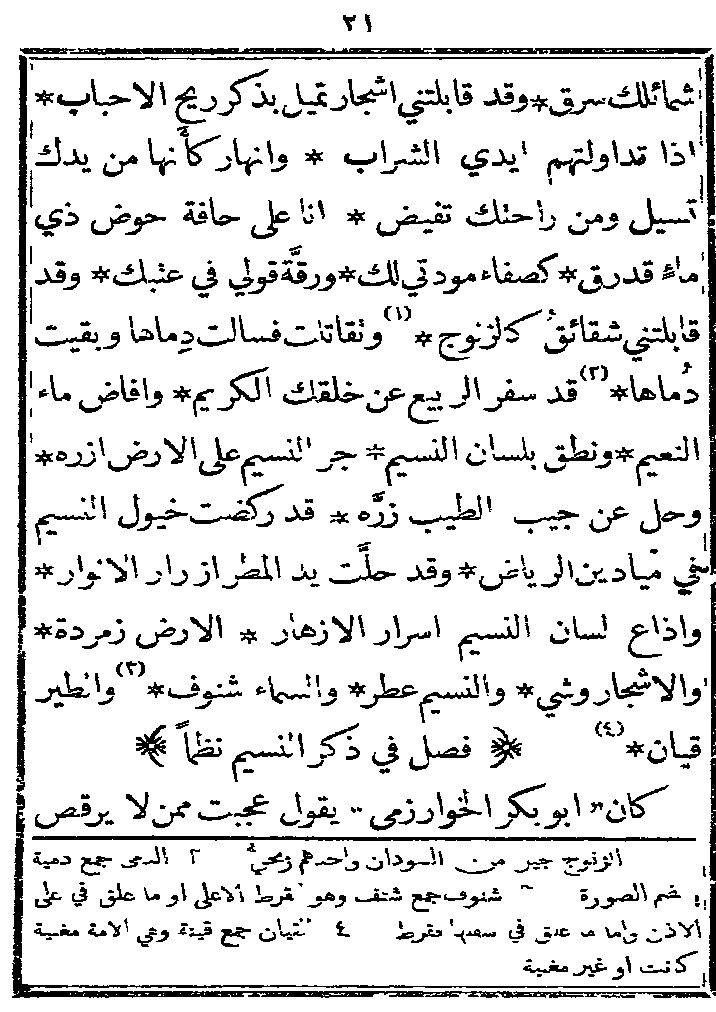 ٢١
شمائلك سرق * وقد قابلتني اشجار تميل بذكر ريح الاحباب *
اذا تداولتهم ايدي الشراب * وانهار كأنها من يدك
تسيل ومن راحتك تفيض * انا على حافة حوض ذي
ماء قدرق * كصفاء مودتي لك * ورقَّة قولي في عتبك * وقد
قابلتني شقائق كالزنوج * (١) وتقاتلت فسالت دِماها وبقيت
دُماها * (٢) قد سفر الربيع عن خلقك الكريم * وافاض ماء
النعيم * ونطق بلسان النسيم * جر النسيم على الارض ازره *
وحل عن جيب الطيب زرَّه * قد ركضت خيول النسيم
في ميادين الرياض * وقد حلَّت يد المطر ازرار الانوار *
واذاع لسان النسيم اسرار الازهار * الارض زمردة *
والاشجار وشي * والنسيم عطر * والسماء شنوف * (٣) والطير
قيان * (٤) ﴿ فصل في ذكر النسيم نظماً ﴾
كان " ابو بكر الخوارزمى " يقول عجبت ممن لا يرقص
الزنوج جيل من السودان واحدهم زنجي ٢ الدمى جمع دمية
بضم الصورة ٣ شنوف جمع شنف وهو القرط الاعلى او ما علق في على
الاذن واما ما علق في سفلها فقرط ٤ القيان جمع قينة وهي الامة مغنية
كانت او غير مغنية